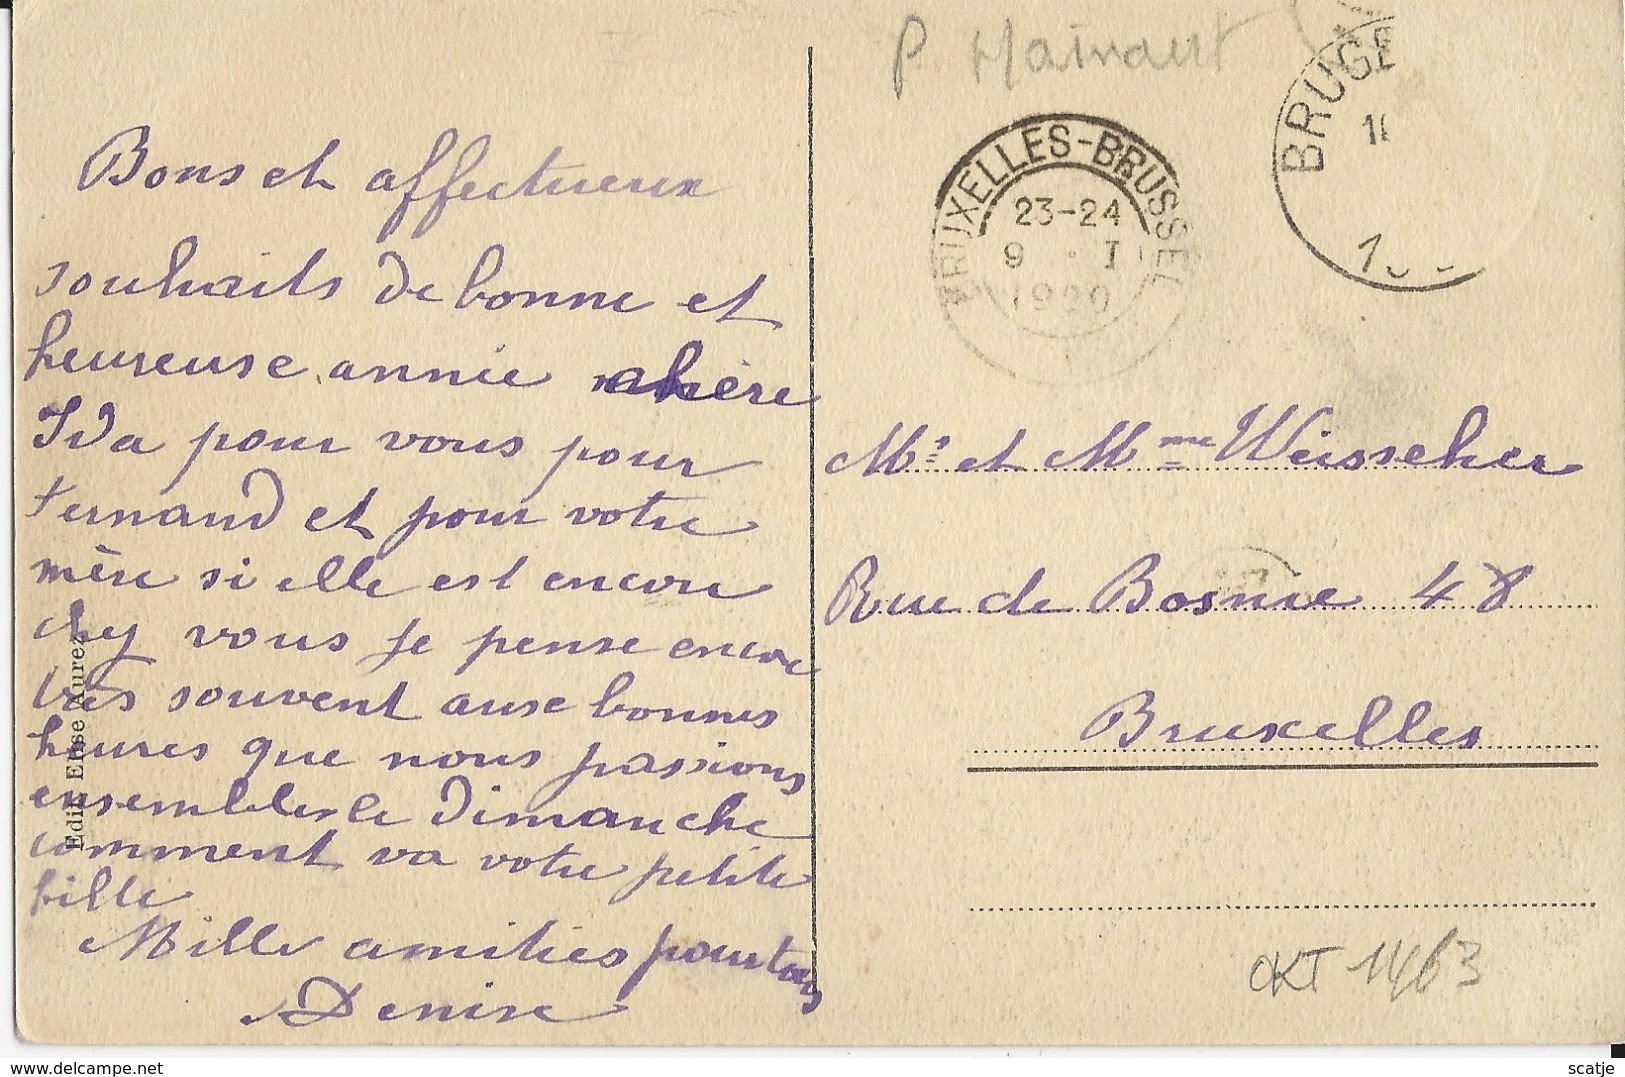 P Hainaut
BRUGE
BRUXELLES-BRUSSEL
23-24
9 . I
1920
Bons et affectueux
souhaits de bonne et
heureuse année chère
Ida pour vous pour
Fernand et pour votre
mère si elle est encore
chez vous je pense encore
très souvent ause bonnes
heures que nous passions
ensembles le dimanche
comment va votre petite
fille
Mille amitiés pour tous
Denise
Edit. Elise Aurez
Mr et Mme Weisscher
Rue de Bosnie 48
Bruxelles
OKT 1463
scatje
www.delcampe.net